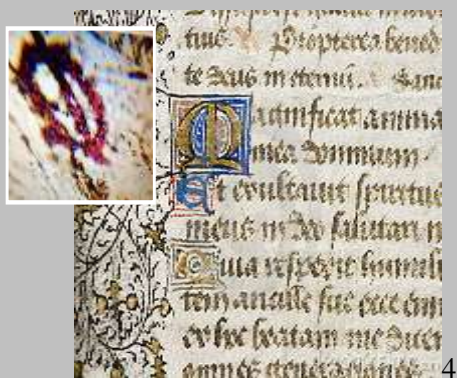 tuus. Propterea bened
te deus in eternum. Sanc
Magnificat anima
mea dominum
Et exultavit spiritus
meus in deo salutari m
Quia respexit humili
tem ancille sue ecce enim
ex hoc beatam me dicen
omnes generationes
4